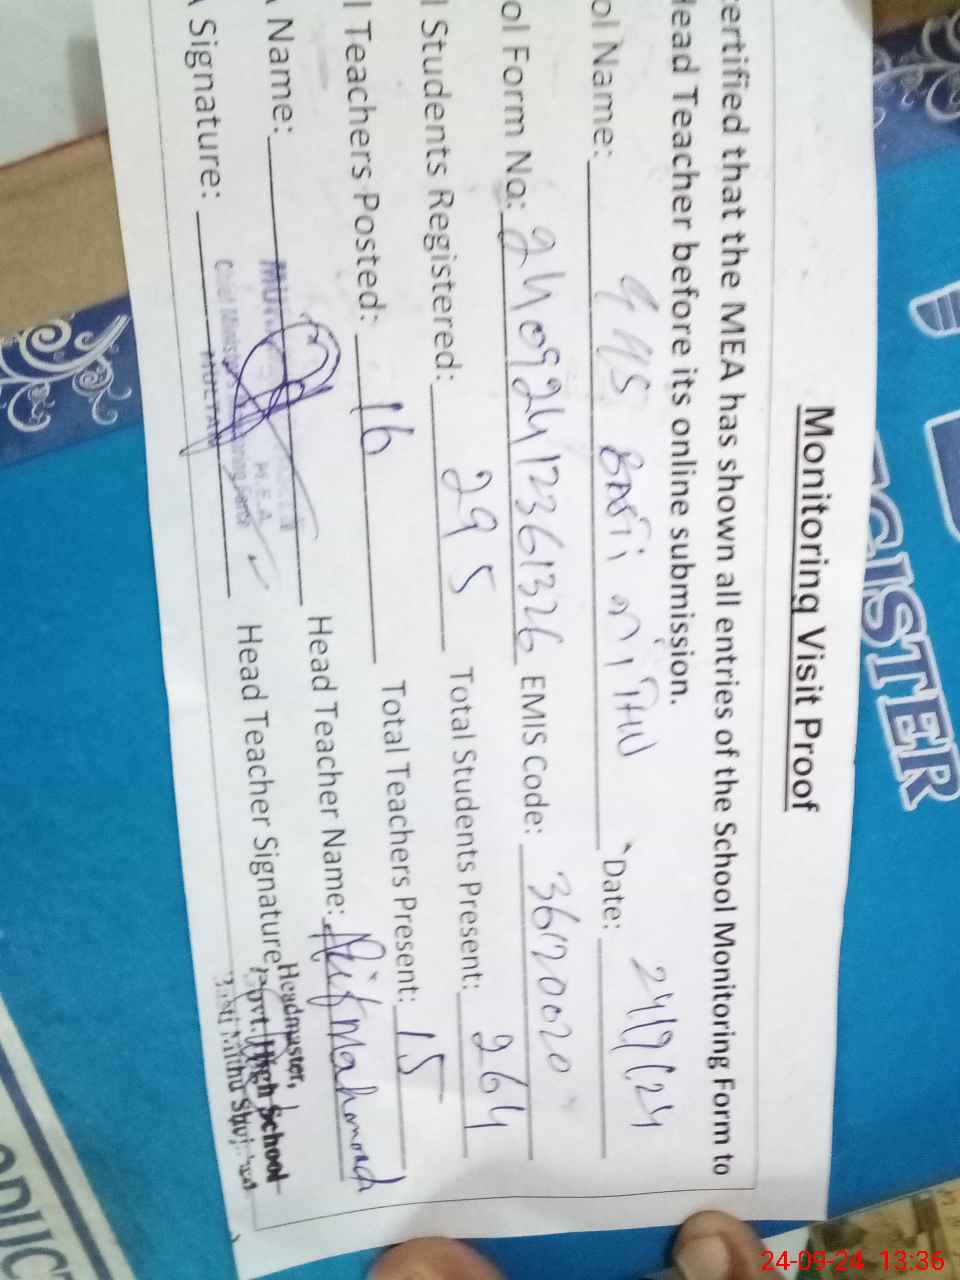 Monitoring Visit Proof
ertified that the MEA has shown all entries of the School Monitoring Form to
Head Teacher before its online submission.
ol Name: Date: 24/9/24
ol Form No: 24092412361326 EMIS Code: 36120020
l Students Registered: 295 Total Students Present: 264
l Teachers Posted: 16 Total Teachers Present: 15
Name: Head Teacher Name: Mahmood
Signature: Head Teacher Signature
M.E.A
MULTAN
Headmaster,
Govt. High School
REGISTER
24-09-24 13:36